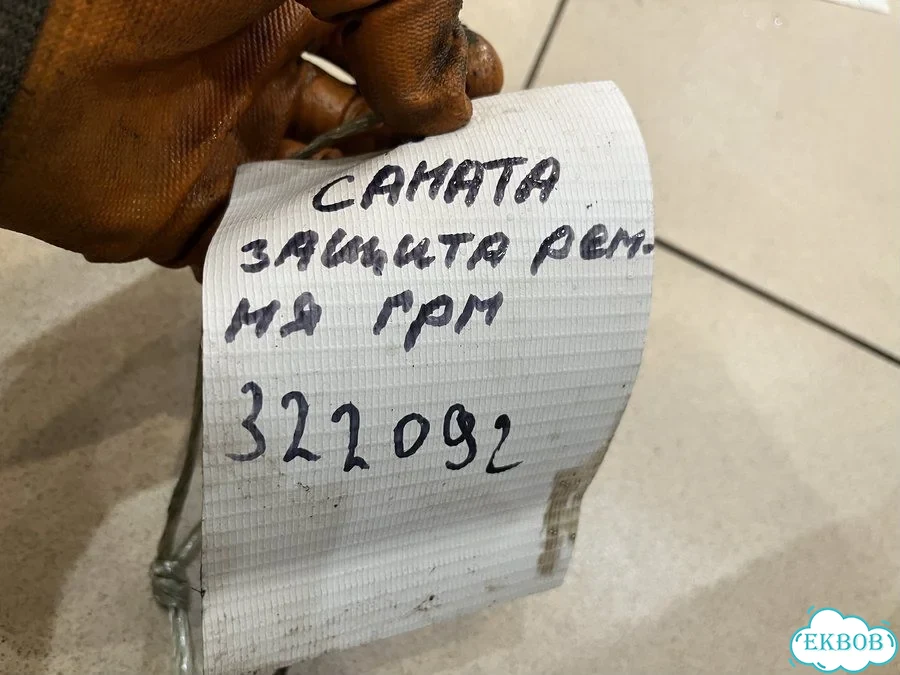 САНАТА
ЗАЩИТА РЕМ-
НЯ ГРМ
322092
EKBOB